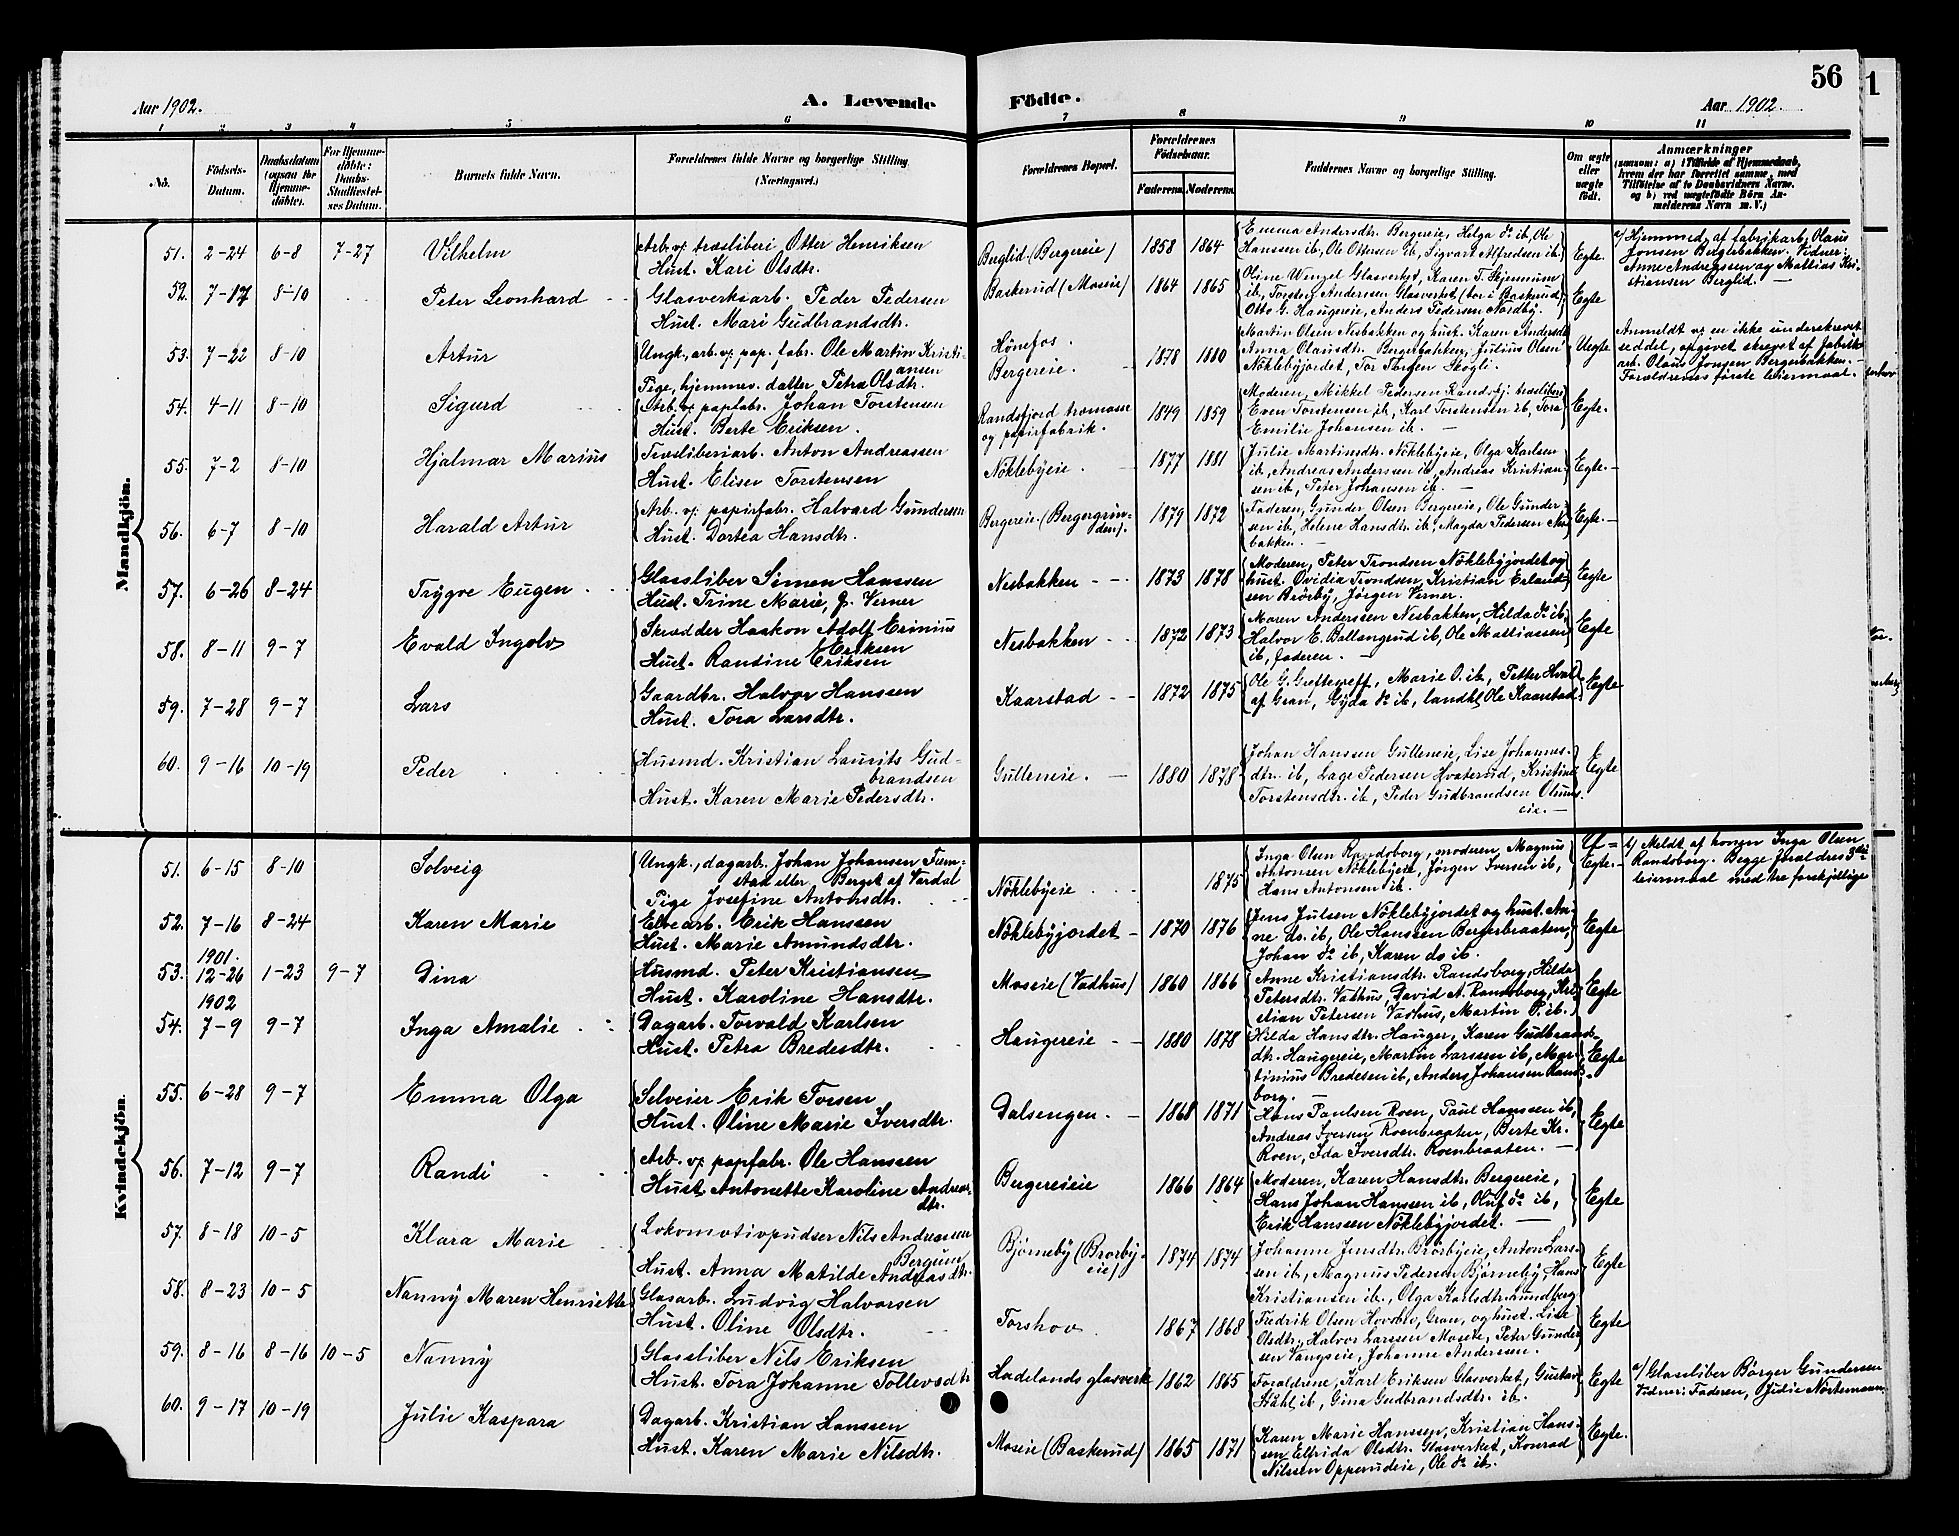 56
Aar 1902.
A. Levende Födte.
Aar 1902.
1 2 3 4 5 6 7 8 9 10 11
No.
Födsels-Datum.
Daabsdatum (ogsaa for Hjemme-döbte).
For Hjemme-döbte: Daabs-Stadfæstel-ses Datum.
Barnets fulde Navn.
Forældrenes fulde Navne og borgerlige Stilling.
(Næringsvei.)
Forældrenes Bopæl.
Forældrenes Födselsaar.
Faderens. Moderens.
Faddernes Navne og borgerlige Stilling.
Om ægte eller uægte födt.
Anmærkninger
(saasom: a) i Tilfælde af Hjemmedaab,
hvem der har forrettet samme, med
Tilföielse af to Daabsvidners Navne.
og b) ved uægtefödte Börn An-
melderens Navn m. V.)
Mandkjön.
51. 2-24 6-8 7-27 Vilhelm
Arb. v. træsliberi Otter Henriksen
Hust. Kari Olsdtr.
Berglid (Bergereie) 1858 1864
Emma Andersdtr. Bergereie, Helga do ib, Ole
Hanssen ib, Ole Ottersen ib, Sigvart Alfredsen ib.
Egte.
a/ Hjemmed. af fabrikarb. Olaus
Jonsen Bergerbakken. Vidner:
Anne Andreassen og Mattias Kri-
stiansen Berglid.
52. 7-17 8-10 Peter Leonhard
Glasverksarb. Peder Pedersen
Hust. Mari Gudbrandsdtr.
Baskerud (Moseie) 1864 1865
Oline Wenzel Glasverket, Karen T. Skjennum
ib, Torsten Andersen Glasverket (bor i Baskerud)
Otto G. Haugereie, Anders Pedersen Nordby.
Egte
53. 7-22 8-10 Artur
Ungk., arb. v. pap. fabr. Ole Martin Kristi-
ansen
Pige, hjemmev. datter, Petra Olsdtr.
Hönefos.
Bergereie. 1878 1880
Martin Olsen Nesbakken og hust. Karen Andersdtr
Anna Olausdtr. Bergerbakken, Julius Olsen
Nöklebyjordet, Tor Torgen Skögli.
Uegte
Anmeldt v. en ikke underskrevet
seddel, opgivet skrevet af fabrik-
arb. Olaus Jonsen Bergerbakken.
Forældrenes første leiermaal.
54. 4-11 8-10 Sigurd
Arb. v. papfabr. Johan Torstensen
Hust. Berte Eriksen.
Randsfjord træmasse
og papirfabrik. 1849 1859
Moderen, Mikkel Pedersen Randsfj. træsliberi
Even Torstensen ib, Karl Torstensen ib, Tora
Emilie Johansen ib.
Egte.
55. 7-2 8-10 Hjalmar Marius
Træsliberiarb. Anton Andreassen
Hust. Elise Torstensen
Nöklebyeie. 1877 1881
Julie Martinsdtr. Nöklebyeie, Olga Karlsen
ib, Andreas Andersen ib, Andreas Kristian-
sen ib, Peter Johansen ib.
Egte.
56. 6-7 8-10 Harald Artur
Arb. v. papirfabr. Halvard Gundersen
Hust. Dortea Hansdtr.
Bergereie (Bergergrin-
den). 1879 1872
Faderen, Gunder Olsen Bergereie, Ole Gunder-
sen ib, Helene Hansdtr. ib, Magda Pedersen Nes
bakken.
Egte.
57. 6-26 8-24 Trygve Eugen
Glassliber Simen Hanssen
Hust. Trine Marie, f. Verner
Nesbakken 1873 1878
Moderen, Peter Trondsen Nöklebyjordet og
hust. Ovidia Trondsen, Kristian Erland-
sen Brörby, Jörgen Verner.
Egte
58. 8-11 9-7 Evald Ingolv
Skrædder Haakon Adolf Erinius
Eriksen
Hust. Randine Eriksen
Nesbakken 1872 1873
Maren Anderssen Nesbakken, Hilda do ib,
Halvor E. Ballangrud ib, Ole Mattiassen
ib, faderen.
Egte
59. 7-28 9-7 Lars
Gaardbr. Halvor Hanssen
Hust. Tora Larsdtr.
Kaarstad 1872 1875
Ole G. Greftegreff, Marie O. ib, Petter Hval
af Gran, Gyda do ib, landhl Ole Kaarstad
Egte
60. 9-16 10-19 Peder
Husmd. Kristian Laurits Gud-
brandsen
Hust. Karen Marie Pedersdtr.
Gulleneie. 1880 1878
Johan Hanssen Gulleneie, Lise Johannes-
dtr. ib, Lage Pedersen Hvaterud, Kristine
Torstensdtr. ib, Peder Gudbrandsen Olums-
eie.
Egte
Kvindekjön.
51. 6-15 8-10 Solveig
Ungk., dagarb. Johan Johansen Fum-
stad eller Berget af Vardal
Pige Josefine Antonsdtr.
Nöklebyeie 1875
Inga Olsen Randsborg, moderen, Magnus
Antonsen Nöklebyeie, Jörgen Iversen ib,
Hans Antonsen ib.
U-
Egte.
b/ Meldt af konen Inga Olsen
Randsborg. Begge forældres 3die
leiermaal med tre forskjellige
52. 7-16 8-24 Karen Marie
Elvearb. Erik Hanssen
Hust. Marie Amundsdtr.
Nöklebyjordet 1870 1876
Jens Julsen Nöklebyjordet og hust. An-
ne do. ib, Ole Hanssen Bergerbraaten,
Johan do ib, Karen do ib.
Egte
1901.
53. 12-26 1-23 9-7 Dina
Husmd. Peter Kristiansen
Hust. Karoline Hansdtr.
Moseie (Vadhus) 1860 1866
Anne Kristiansdtr. Randsborg, Hilda
Petersdtr. Vathus, David A. Randsborg, Kri-
stian Petersen Vadhus, Martin P. ib.
Egte
1902
54. 7-9 9-7 Inga Amalie
Dagarb. Torvald Karlsen
Hust. Petra Bredesdtr.
Haugereie 1880 1878
Hilda Hansdtr. Hauger, Karen Gudbrands-
dtr. Haugereie, Martin Larssen ib, Mar-
tinius Bredesen ib, Anders Johansen Rands-
borg.
Egte
55. 6-28 9-7 Emma Olga
Selveier Erik Torsen
Hust. Oline Marie Iversdtr.
Dalsengen. 1868 1871
Hans Paulsen Roen, Paul Hanssen ib,
Andreas Iversen Roenbraaten, Berte Kr.
Roen, Ida Iversdtr. Roenbraaten.
Egte
56. 7-12 9-7 Randi
Arb. v. papfabr. Ole Hanssen
Hust. Antonette Karoline Andreas-
dtr.
Bergereieie 1866 1864
Moderen, Karen Hansdtr. Bergereie,
Hans Johan Hanssen ib, Oluf do ib,
Erik Hanssen Nöklebyjordet.
Egte
57. 8-18 10-5 Klara Marie
Lokomotivpudser Nils Andreassen
Bergum
Hust. Anna Matilde Andreasdtr.
Bjørneby (Brørby-
eie) 1874 1874
Johanne Jensdtr. Brörbyeie, Anton Lars-
sen ib, Magnus Pedersen Bjørneby, Hans
Kristiansen ib, Olga Karlsdtr. Grundberg
Egte
58. 8-23 10-5 Nanny Maren Henriette
Glasarb. Ludvig Halvorsen
Hust. Oline Olsdtr.
Torshov 1867 1868
Fredrik Olsen Hovslo, Gran, og hust. Lise
Olsdtr., Halvor Larssen Moseie, Peter Gunder-
sen Vangseie, Johanne Andersen.
Egte
59. 8-16 8-16 10-5 Nanny
Glassliber Nils Eriksen
Hust. Tora Johanne Tollevsdtr
Hadelands glasverk 1862 1865
Forældrene, Karl Eriksen Glasverket, Gustav
Ståhl ib, Gina Gudbrandsdtr. ib.
Egte
a/ Glassliber Börger Gundersen
Vidner: Faderen, Ojidia Nortemann
60. 9-17 10-19 Julie Kaspara
Dagarb. Kristian Hanssen
Hust. Karen Marie Nilsdtr.
Moseie (Baskerud) 1865 1871
Karen Marie Hanssen, Kristian Hans-
sen Elfrida Olsdtr. Glasverket, Konrad
Nilssen Opperudeie, Ole do ib.
Egte.